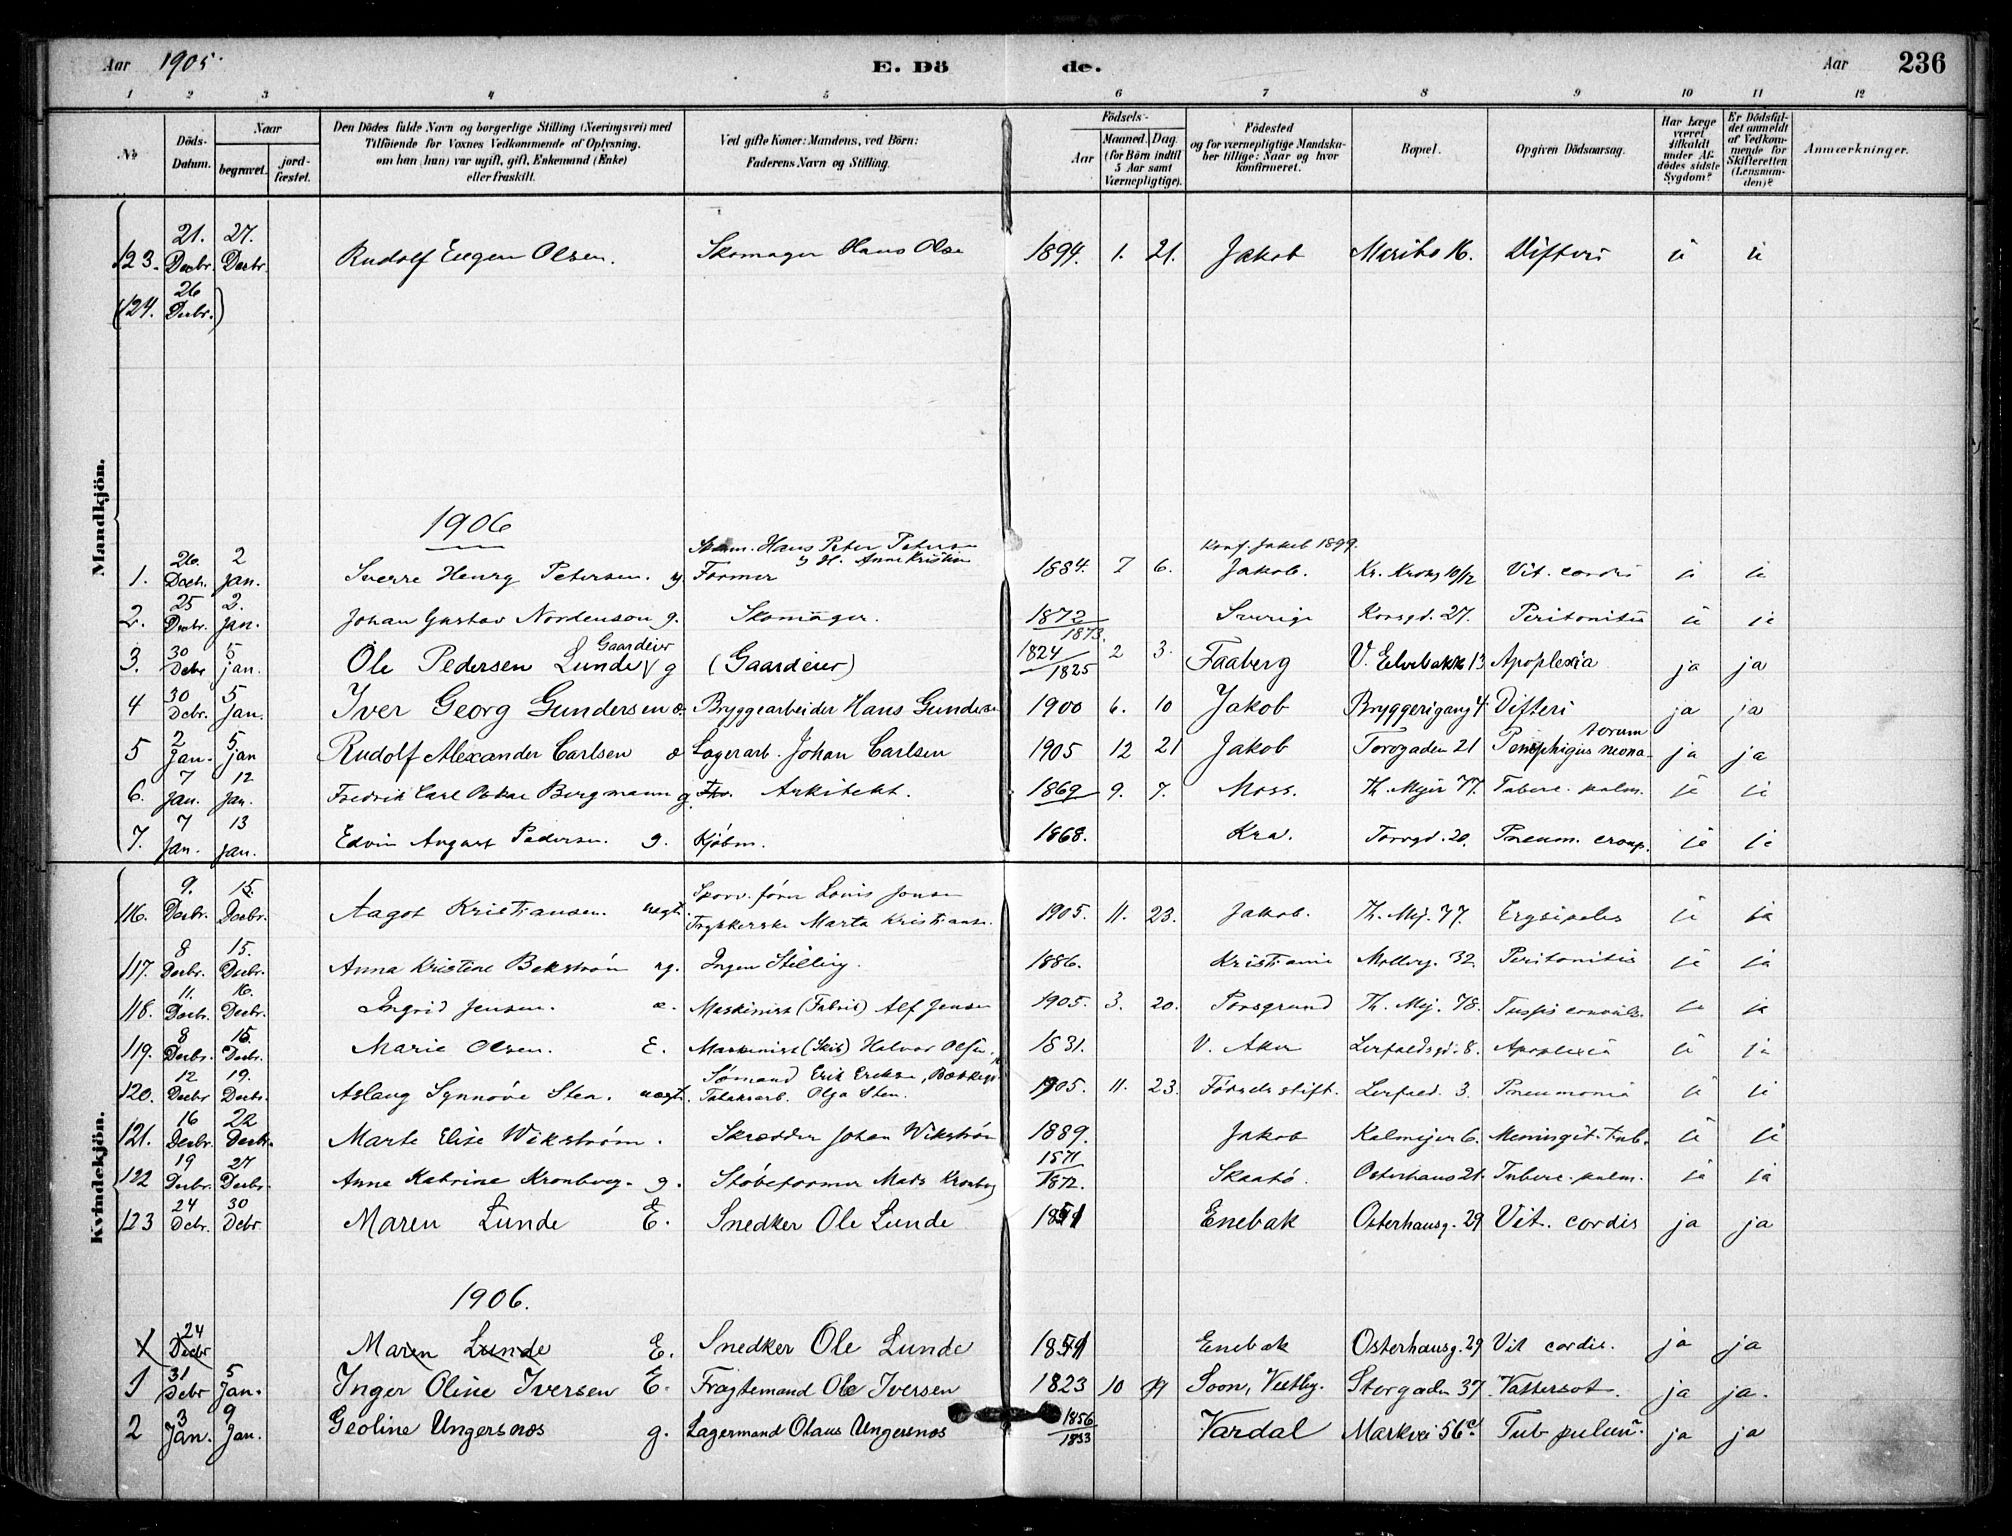 Aar 1905. E. Dö de. Aar 236
1 2 3 4 5 6 7 8 9 10 11 12
No Döds-Datum. Naar begravet. jord-fæstet. Den Dödes fulde Navn og borgerlige Stilling (Næringsvei) med Tilföiende for Voxnes Vedkommende af Oplysning, om han (hun) var ugift, gift, Enkemand (Enke) eller fraskilt. Ved gifte Koner: Mandens, ved Börn: Faderens Navn og Stilling. Födsels- Aar Maaned. Dag. (for Börn indtil 5 Aar samt Værnepligtige). Födested og for værnepligtige Mandskaber tillige: Naar og hvor konfirmeret. Bopæl. Opgiven Dödsaarsag. Har Læge været tilkaldt under Afdödes sidste Sygdom? Er Dödsfaldet anmeldt af Vedkommende for Skifteretten (Lensmanden)? Anmærkninger.
Mandkjön.
123. 21. Decbr. 27. Decbr. Rudolf Eugen Olsen. Skomager Hans Olse 1894. 1. 21. Jakob Maribo 16. Difteri ja ja
(124. 26 Decbr.)
1906
1. 26. Decbr. 2 Jan. Sverre Henry Petersen. Former Hans Peter Petersen Anne Kristine 1884. 7 6. Konf. Jakob 1899. Jakob. Kr. Krohg 10/12 Vit. cordis ja ja
2. 25 Decbr. 2. Jan. Johan Gustav Nordenson g. Skomager. 1872/1873. Sverige Korsgd. 27. Peritonitis ja ja
3. 30 Debr 5 jan. Ole Pedersen Lunde Gaardeier g (Gaardeier) 1824/1825 2 3. Faaberg V. Elvebakke 13 Apoplexia ja ja
4 30 Debr. 5 Jan. Iver Georg Gundersen Bryggearbeider Hans Gunderse 1900 6. 10 Jakob Bryggerigang 4. Difteri ja ja
5 2 Jan. 5 jan Rudolf Alexander Carlsen Lagerarb. Johan Carlsen 1905 12 21 Jakob Torvgaden 21 Pemphigus neonatorum ja ja
6. 7 Jan. 12 Jan. Fredrik Carl Oskar Bergmann g. Arkitekt. 1869 9. 7. Moss. Th. Mejer 77. Tuberc. pulm. ja ja
7. 7 Jan. 13 Jan. Edvin August Pedersen. g. Kjöbm. 1868. Kra. Torvgd. 20. Pneum. croup. ja ja
Kvindekjön.
116. 9. Decbr. 15. Decbr. Aagot Kristiansen. uegt. Sporv. förer Louis Jensen Trykkerske Marta Kristianse. 1905. 11. 23. Jakob. Th. Mej. 77. Erysipelas ja ja
117. 8 Decbr. 15. Decbr. Anna Kristine Bekström ug. Ingen Stilling. 1886. Kristiania Mollerg. 32. Peritonitis ja ja
118. 11. Decbr. 16. Decbr. Ingrid Jensen. æ. Maskinist (Fabrik) Alf Jensen 1905. 3. 20. Porsgrund Th. Mej. 78. Tussis convuls. ja ja
119. 8 Decbr. 15. Decbr. Marie Olsen. E. Maskinist (Skib) Halvor Olsen 1831. V. Aker Lerfaldsgd. 8. Apoplexia ja ja
120. 12 Decbr 19. Decbr. Aslaug Synnöve Sten. uegt. Sömand Erik Eriksen, Tobaksarb. Olga Sten. 1905. 11. 23. Födselsstift. Lerfald. 3. Pneumonia ja ja
121. 16 Decbr. 22 Decbr. Marte Elise Wikström. Skrædder Johan Wikström 1889. Jakob Kalmejer 6. Meningit. tub. ja ja
122 19 Decbr. 27 Decbr. Anne Katrine Kronberg. g. Stöbeformer Mads Kronberg 1871/1872. Skaatö. Osterhaus 21. Tuberc. pulm. ja ja
123 24 Debr. 30 Debr Maren Lunde E. Snedker Ole Lunde 1851 Enebak Osterhausg. 29 Vit. cordis ja ja
1906.
1 24 Decbr Maren Lunde E. Snedker Ole Lunde 1851 Enebak Osterhausg. 29 Vit cordis. ja ja
1 31 Debr 5 Jan. Inger Oline Iversen E. Fragtemand Ole Iversen 1823 10 Soon, Vestby. Storgaden 37 Vattersot. ja ja.
2 3 Jan. 9 Jan. Geoline Ungersnös g. Lagermand Olaus Ungersnös 1856/1833 Vardal Markvei 56c. Tub pulm. ja ja